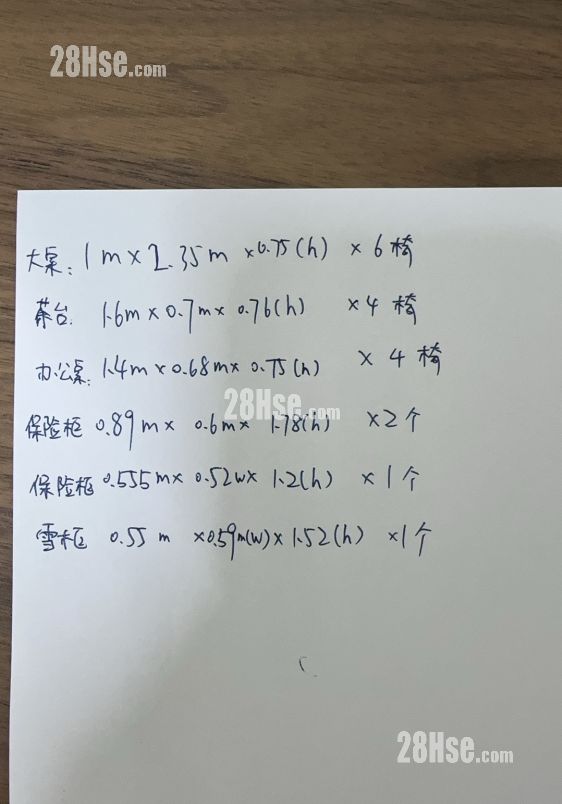 28Hse.com
大桌: 1m×2.35m×0.75(h) ×6椅
茶台. 1.6m×0.7m×0.76(h) ×4椅
办公桌: 1.4m×0.68m×0.75(h) ×4椅
28Hse.com
保险柜 0.89m× 0.6m× 1.78(h) ×2个
保险柜 0.555m× 0.52w× 1.2(h) ×1个
雪柜 0.55m ×0.59m(w)×1.52(h) ×1个
28Hse.com